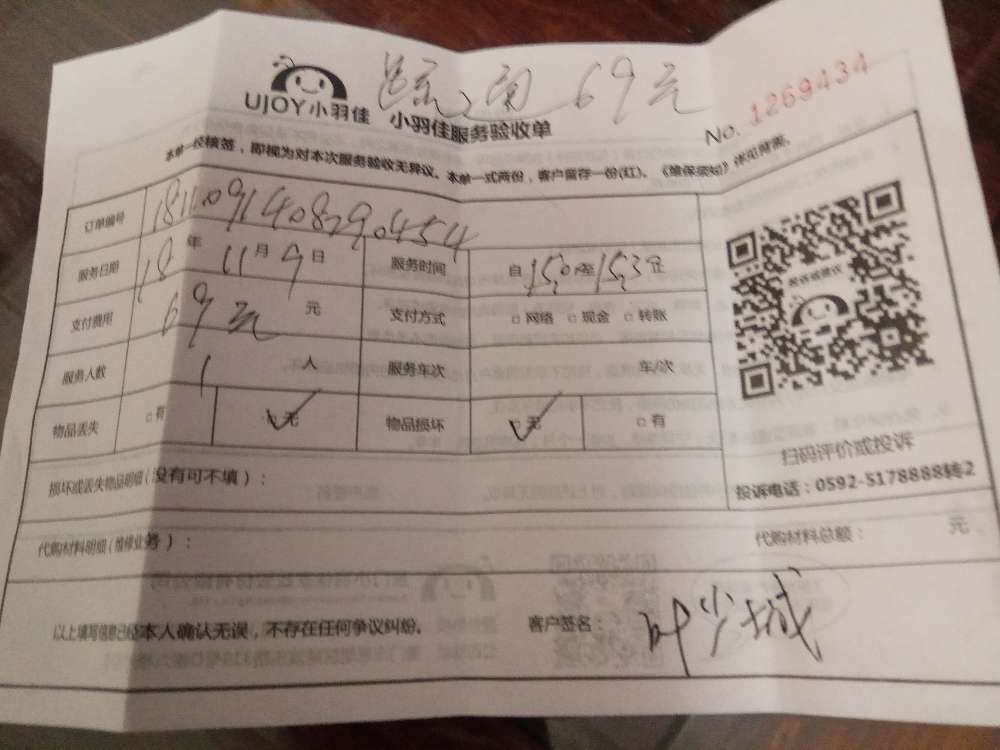 69元
UJOY小羽佳 小羽佳服务验收单
No. 1269434
本单一经核签，即视为对本次服务验收无异议。本单一式两份，客户留存一份(红)。《维保须知》详见背面。
订单编号 1811091408290454
服务日期 18年11月9日 服务时间 自15:0至15:3止
支付费用 69元 元 支付方式 □网络 □现金 □转账
服务人数 1 人 服务车次 车/次
物品丢失 □有 □无 物品损坏 □无 □有
扫码评价或投诉
投诉电话：0592-5178888转2
损坏或丢失物品明细(没有可不填)：
代购材料明细(维修业务)： 代购材料总额： 元
以上填写信息已经本人确认无误，不存在任何争议纠纷。 客户签名：叶少城